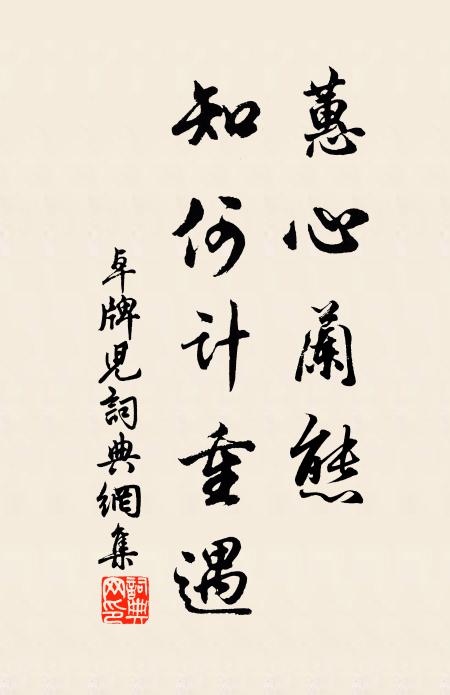 蕙心蘭態
知何計重遇
卓牌兒詞典網集
詞典网印